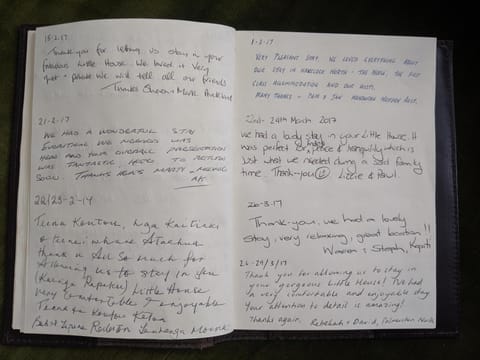 18-2-17
Thank you for letting us stay in your
fabulous Little House. We loved it. Very
quiet & private. We will tell all our friends
Thanks Sharon & Mark Auckland
21-2-17
WE HAD A WONDERFUL STAY
EVERYTHING WE NEEDED WAS
HERE AND YOUR OVERALL PRESENTATION
WAS FANTASTIC. HOPE TO RETURN
SOON. THANKS HEAPS MARTY
Tena Koutou, nga Kaitiaki
o tenei whare Ataahua
thank u All So much for
Allowing us to stay in you
Little House
very comfortable & enjoyable
8-2-17
VERY PLEASANT STAY. WE LOVED EVERYTHING ABOUT
OUR STAY IN HAVELOCK NORTH - THE HOUSE, THE FIRST
CLASS ACCOMMODATION AND OUR HOSTS.
MANY THANKS -
22nd - 24th March 2017
We had a lovely stay in your Little House. It
was perfect for peace & tranquility which is
just what we needed during a sad family
time. Thank-you Lizzie & Paul.
26-3-17
Thank-you, we had a lovely
stay, very relaxing, great location!!
Warren & Steph, Kapiti
26-29/3/17
Thank you for allowing us to stay in
your gorgeous Little House! I've had
a very comfortable and enjoyable stay
Your attention to detail is amazing!
Thanks again. Rebekah & David, Palmerston North